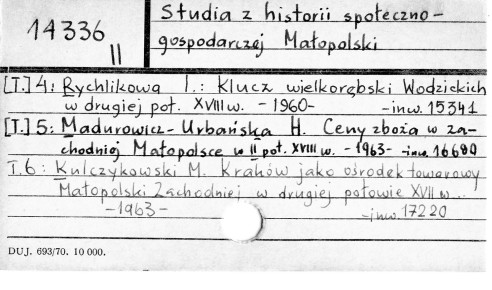 14336
II
Studia z historii społeczno-
gospodarczej Małopolski
[T.] 4: Rychlikowa I.: Klucz wielkorębski Wodzickich
w drugiej poł. XVIII w. - 1960 - - inw. 15341
[T.] 5: Madurowicz-Urbańska H. Ceny zboża w za-
chodniej Małopolsce w II poł. XVIII w. - 1963 - - inw. 16680
T. 6: Kulczykowski M. Kraków jako ośrodek towarowy
Małopolski Zachodniej w drugiej połowie XVII w..
- 1963 - - inw. 17220
DUJ. 693/70. 10 000.